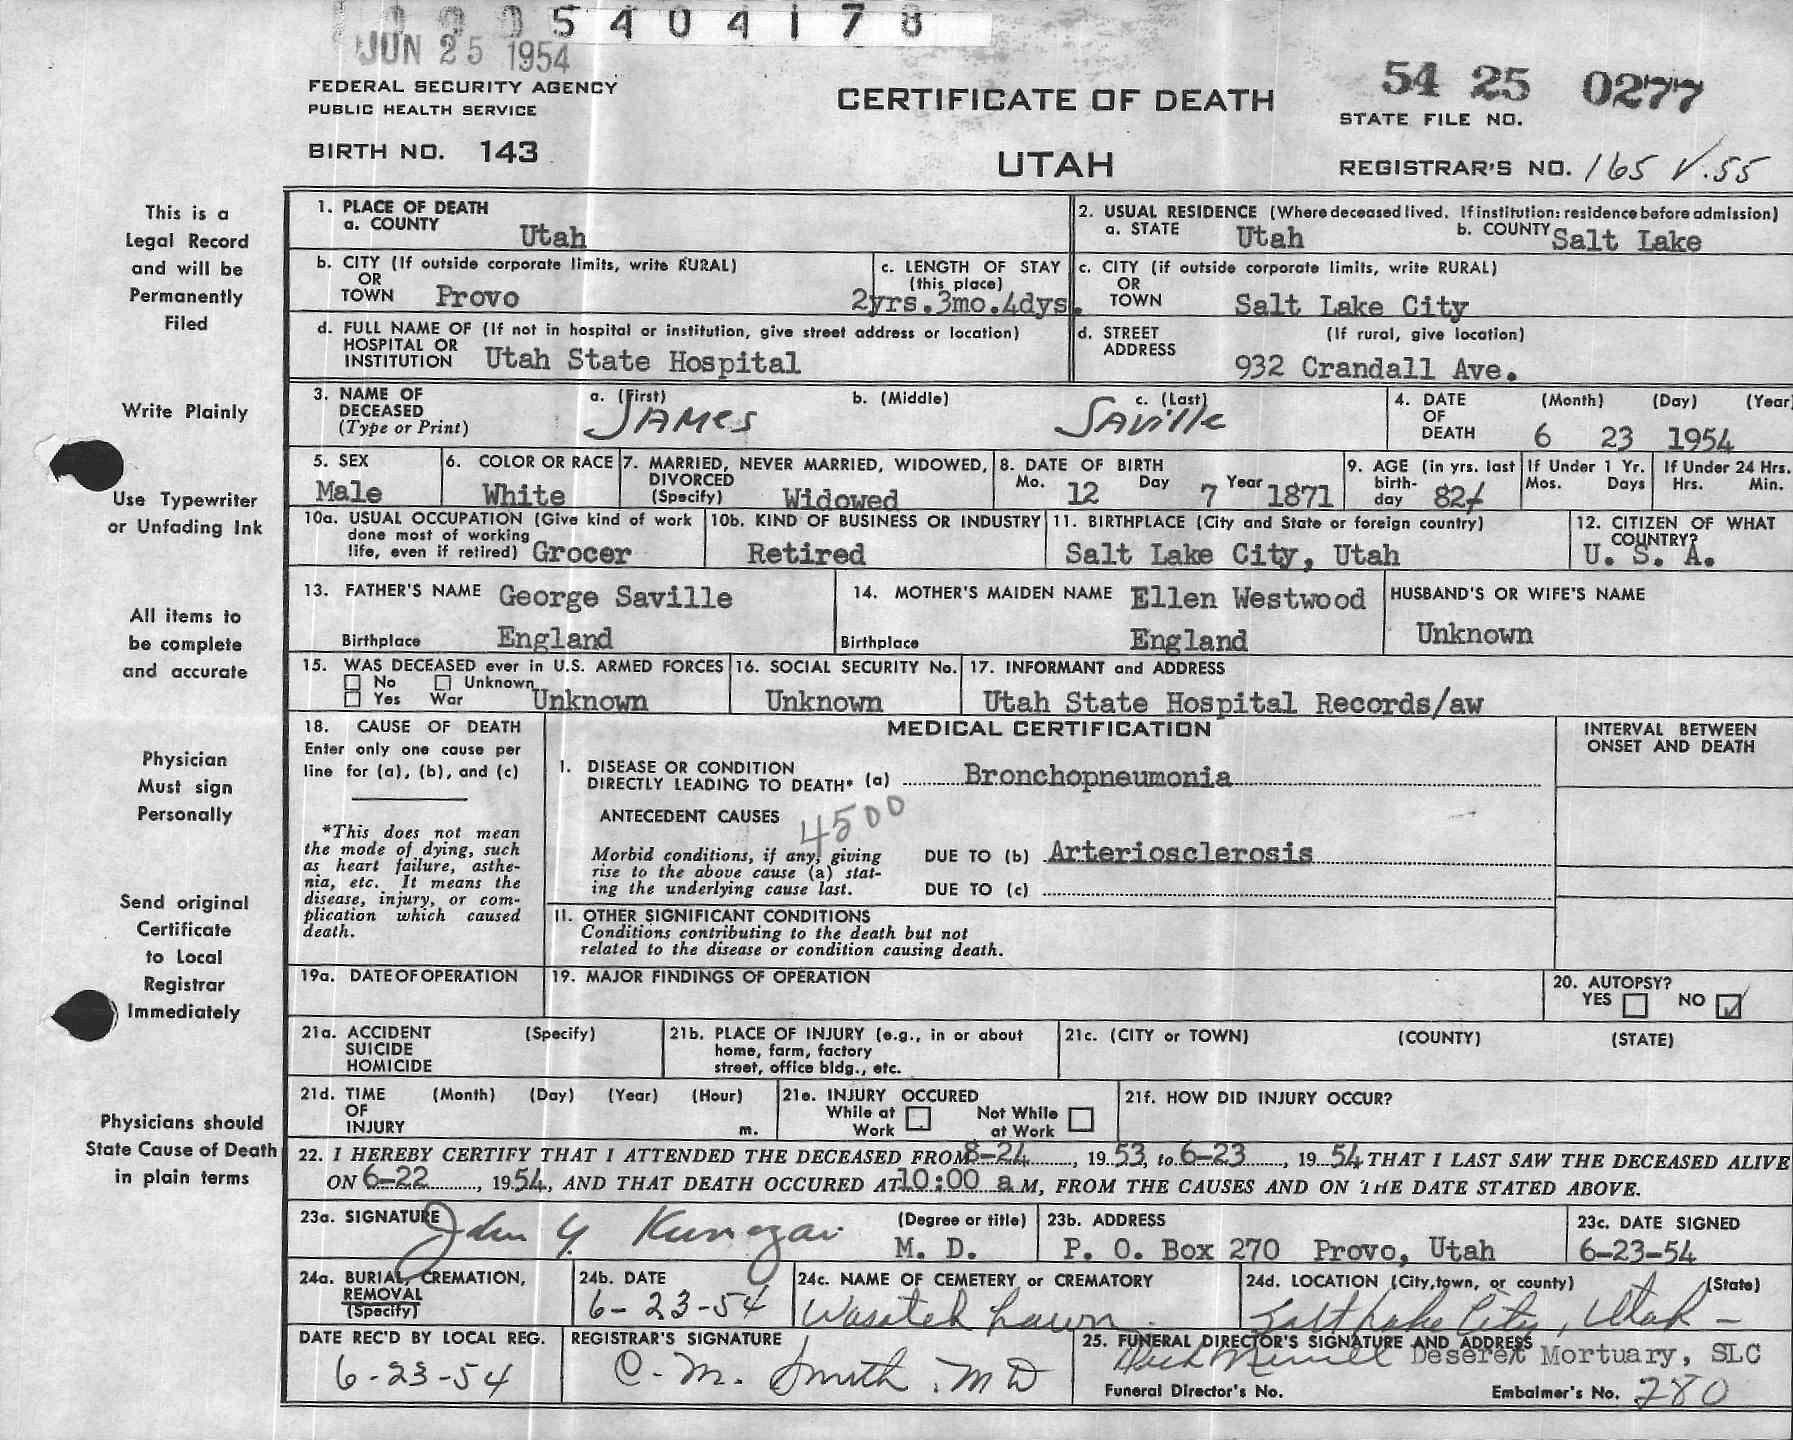 5404178
JUN 25 1954
FEDERAL SECURITY AGENCY
PUBLIC HEALTH SERVICE
BIRTH NO. 143
CERTIFICATE OF DEATH
UTAH
54 25 0277
STATE FILE NO.
REGISTRAR'S NO. 165 V.55
This is a
Legal Record
and will be
Permanently
Filed
Write Plainly
Use Typewriter
or Unfading Ink
All items to
be complete
and accurate
Physician
Must sign
Personally
Send original
Certificate
to Local
Registrar
Immediately
Physicians should
State Cause of Death
in plain terms
1. PLACE OF DEATH
a. COUNTY Utah
2. USUAL RESIDENCE (Where deceased lived. If institution: residence before admission)
a. STATE Utah b. COUNTY Salt Lake
b. CITY (If outside corporate limits, write RURAL)
OR
TOWN Provo
c. LENGTH OF STAY
(this place)
2yrs.3mo.4dys.
c. CITY (if outside corporate limits, write RURAL)
OR
TOWN Salt Lake City
d. FULL NAME OF (If not in hospital or institution, give street address or location)
HOSPITAL OR
INSTITUTION Utah State Hospital
d. STREET (If rural, give location)
ADDRESS
932 Crandall Ave.
3. NAME OF
DECEASED
(Type or Print)
a. (First) b. (Middle) c. (Last)
JAMES SAville
4. DATE (Month) (Day) (Year)
OF
DEATH 6 23 1954
5. SEX
Male
6. COLOR OR RACE
White
7. MARRIED, NEVER MARRIED, WIDOWED,
DIVORCED
(Specify) Widowed
8. DATE OF BIRTH
Mo. 12 Day 7 Year 1871
9. AGE (in yrs. last
birth-
day 82
If Under 1 Yr.
Mos. Days
If Under 24 Hrs.
Hrs. Min.
10a. USUAL OCCUPATION (Give kind of work
done most of working
life, even if retired) Grocer
10b. KIND OF BUSINESS OR INDUSTRY
Retired
11. BIRTHPLACE (City and State or foreign country)
Salt Lake City, Utah
12. CITIZEN OF WHAT
COUNTRY?
U. S. A.
13. FATHER'S NAME George Saville
Birthplace England
14. MOTHER'S MAIDEN NAME Ellen Westwood
Birthplace England
HUSBAND'S OR WIFE'S NAME
Unknown
15. WAS DECEASED ever in U.S. ARMED FORCES
No Unknown
Yes War Unknown
16. SOCIAL SECURITY No.
Unknown
17. INFORMANT and ADDRESS
Utah State Hospital Records/aw
18. CAUSE OF DEATH
Enter only one cause per
line for (a), (b), and (c)
*This does not mean
the mode of dying, such
as heart failure, asthe-
nia, etc. It means the
disease, injury, or com-
plication which caused
death.
MEDICAL CERTIFICATION
INTERVAL BETWEEN
ONSET AND DEATH
I. DISEASE OR CONDITION
DIRECTLY LEADING TO DEATH* (a) Bronchopneumonia
ANTECEDENT CAUSES
4500
Morbid conditions, if any, giving
rise to the above cause (a) stat-
ing the underlying cause last.
DUE TO (b) Arteriosclerosis
DUE TO (c)
II. OTHER SIGNIFICANT CONDITIONS
Conditions contributing to the death but not
related to the disease or condition causing death.
19a. DATE OF OPERATION
19. MAJOR FINDINGS OF OPERATION
20. AUTOPSY?
YES NO ✓
21a. ACCIDENT (Specify)
SUICIDE
HOMICIDE
21b. PLACE OF INJURY (e.g., in or about
home, farm, factory
street, office bldg., etc.
21c. (CITY or TOWN) (COUNTY) (STATE)
21d. TIME (Month) (Day) (Year) (Hour)
OF
INJURY m.
21e. INJURY OCCURED
While at Work Not While at Work
21f. HOW DID INJURY OCCUR?
22. I HEREBY CERTIFY THAT I ATTENDED THE DECEASED FROM 8-24, 1953, to 6-23, 1954 THAT I LAST SAW THE DECEASED ALIVE
ON 6-22, 1954, AND THAT DEATH OCCURED AT 10:00 a M, FROM THE CAUSES AND ON THE DATE STATED ABOVE.
23a. SIGNATURE (Degree or title)
John Y. M. D.
23b. ADDRESS
P. O. Box 270 Provo, Utah
23c. DATE SIGNED
6-23-54
24a. BURIAL, CREMATION,
REMOVAL
(Specify)
24b. DATE
6-23-54
24c. NAME OF CEMETERY or CREMATORY
Wasatch Lawn
24d. LOCATION (City, town, or county) (State)
Salt Lake City, Utah -
DATE REC'D BY LOCAL REG.
6-23-54
REGISTRAR'S SIGNATURE
C. M. Smith, MD
25. FUNERAL DIRECTOR'S SIGNATURE AND ADDRESS
Deseret Mortuary, SLC
Funeral Director's No. Embalmer's No. 280